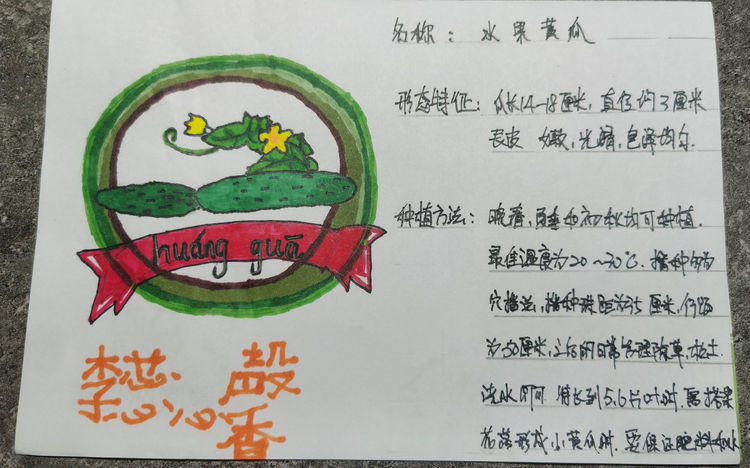 名称：水果黄瓜
形态特征：瓜长14-18厘米，直径约3厘米
表皮 嫩，光滑，色泽均匀.
种植方法：晚春，夏季和初秋均可种植.
最佳温度为20~30℃.播种多为
穴播法，播种株距为35厘米，行距
为50厘米，之后的日常管理除草，松土.
浇水即可.待长到5.6片叶时.需搭架
花落形成小黄瓜时.要保证肥料和水
huáng guā
李蕊
馨